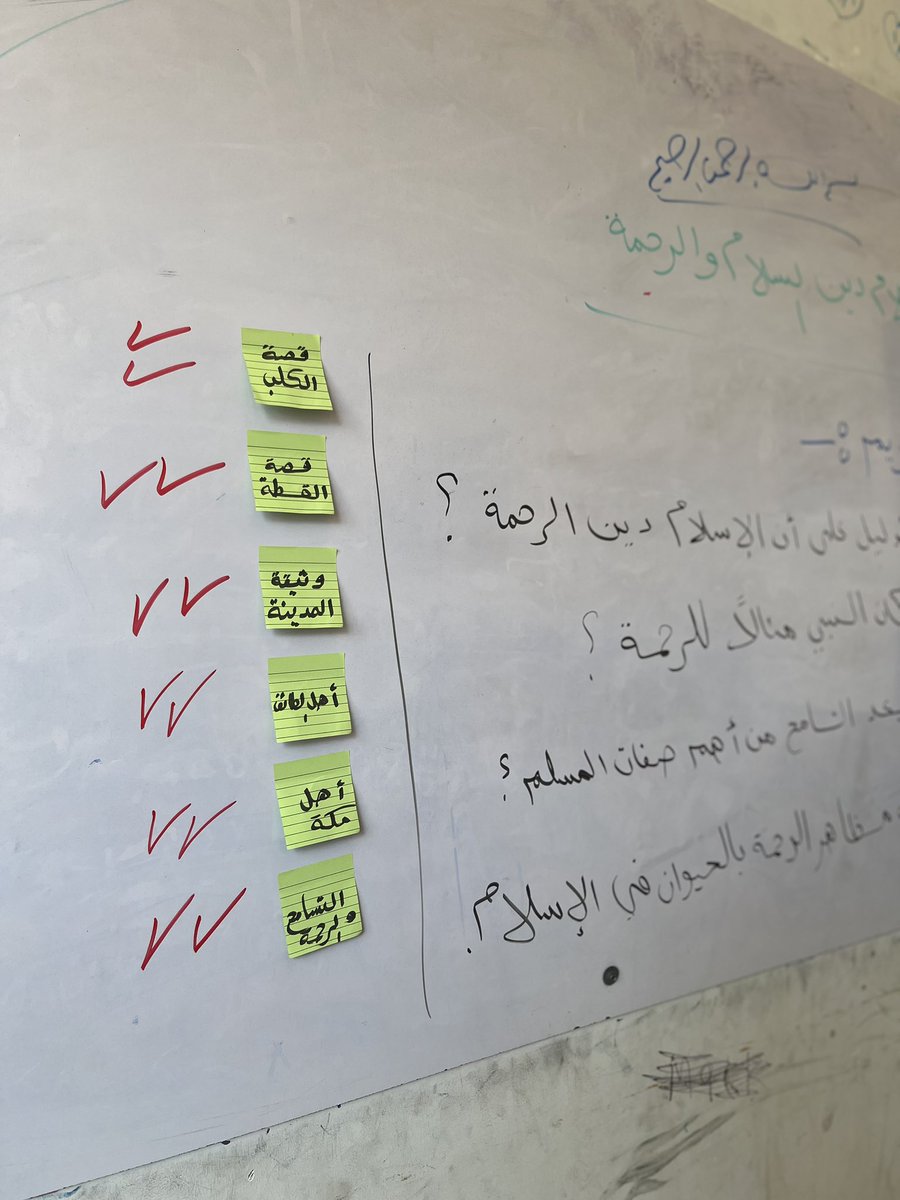 بسم الله الرحمن الرحيم
دين السلام والرحمة
على أن الإسلام دين الرحمة ؟
النبي مثالاً للرحمة ؟
التسامح من أهم صفات المسلم ؟
مظاهر الرحمة بالحيوان في الإسلام .
قصة
الكلب
قصة
القطة
وثيقة
المدينة
أهل الطائف
أهل
مكة
التسامح
والرحمة